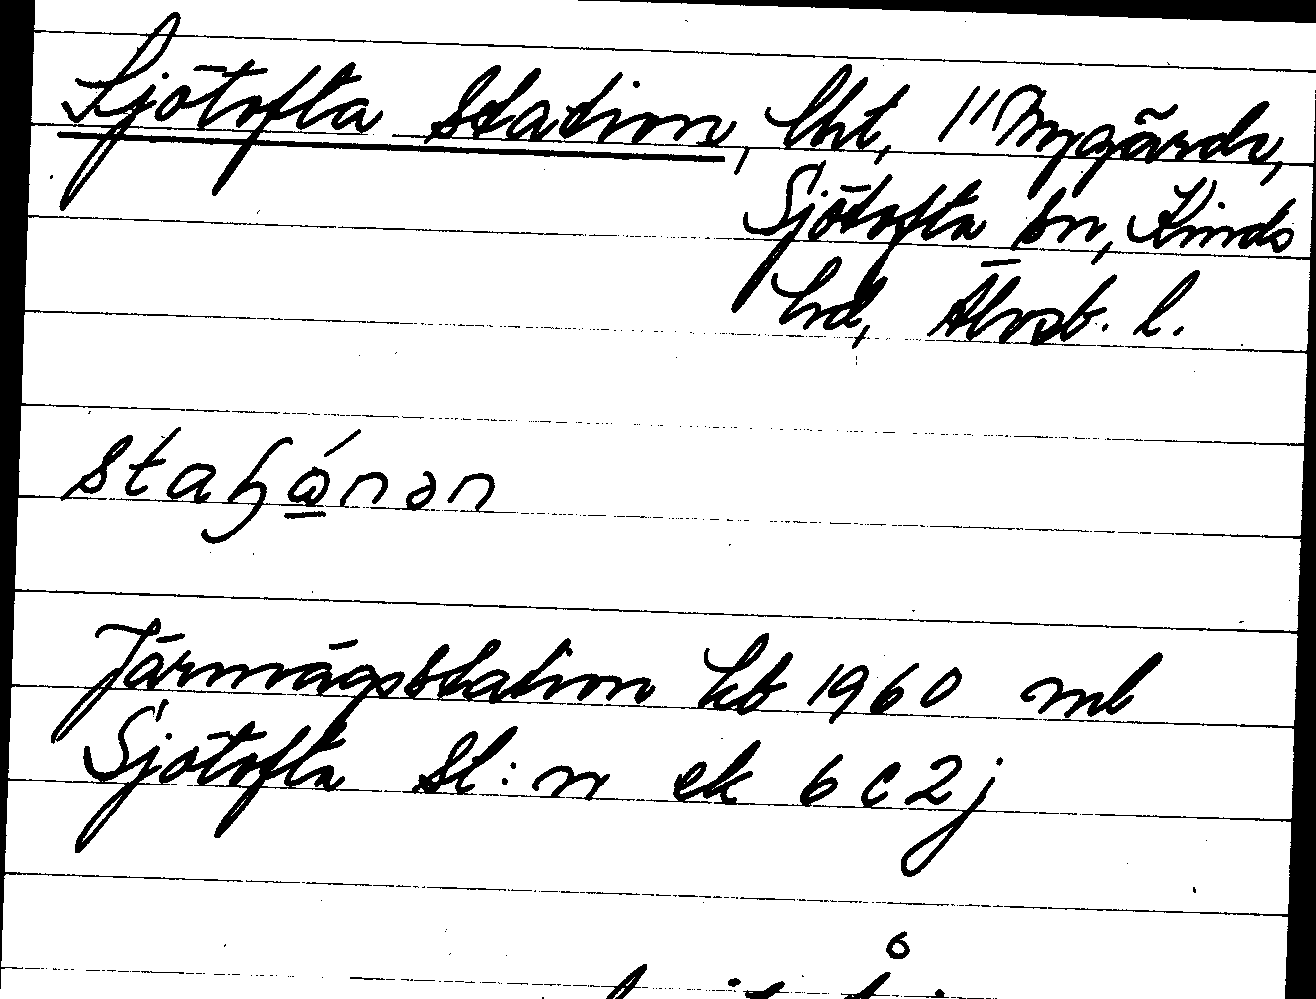 Sjötofta Station, lht, 1" Nygårde,
Sjötofta sn, Kinds
hd, Älvsb. l.
staɧånən
Järnvägsstation kb 1960 ml
Sjötofta st:n ek 6 c 2 j